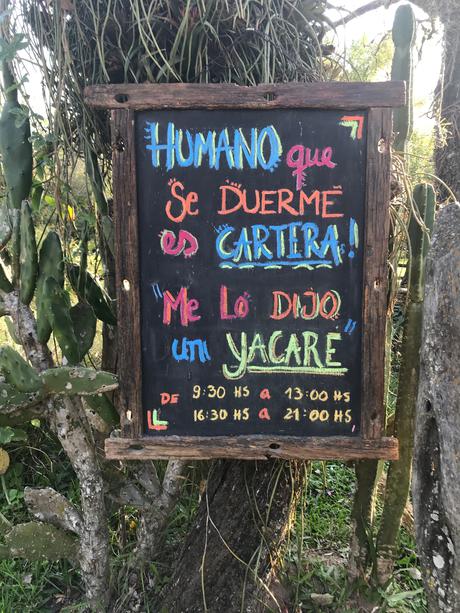 HUMANO que
Se DUERME
es CARTERA!
"Me Lo DIJO
un YACARE"
DE 9:30 HS a 13:00 HS
16:30 HS a 21:00 HS